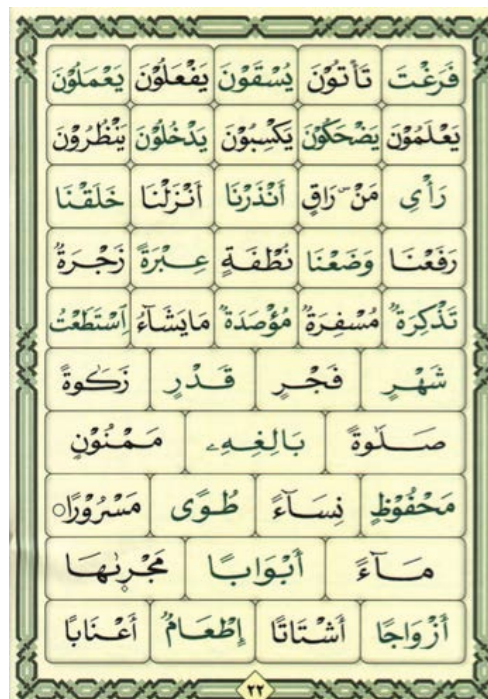 فَرَغْتَ تَأْتُوْنَ يُسْقَوْنَ يَفْعَلُوْنَ يَعْمَلُوْنَ
يَعْلَمُوْنَ يَضْحَكُوْنَ يَكْسِبُوْنَ يَدْخُلُوْنَ يَنْظُرُوْنَ
رَأْىِ مَنْ سكتة رَاقٍ اَنْذَرْنَا اَنْزَلْنَا خَلَقْنَا
رَفَعْنَا وَضَعْنَا نُطْفَةٍ عِبْرَةً زَجْرَةٌ
تَذْكِرَةٌ مُسْفِرَةٌ مُؤْصَدَةٌ مَايَشَآءُ اِسْتَطَعْتُ
شَهْرٍ فَجْرٍ قَدْرٍ زَكٰوةً
صَلٰوةً بَالِغِهٖ مَمْنُوْنٍ
مَحْفُوْظٍ نِسَآءً طُوًى مَسْرُوْرًا
مَآءً أَبْوَابًا مَجْرٖىهَا
أَزْوَاجًا أَشْتَاتًا إِطْعَامٌ أَعْنَابًا
٢٢